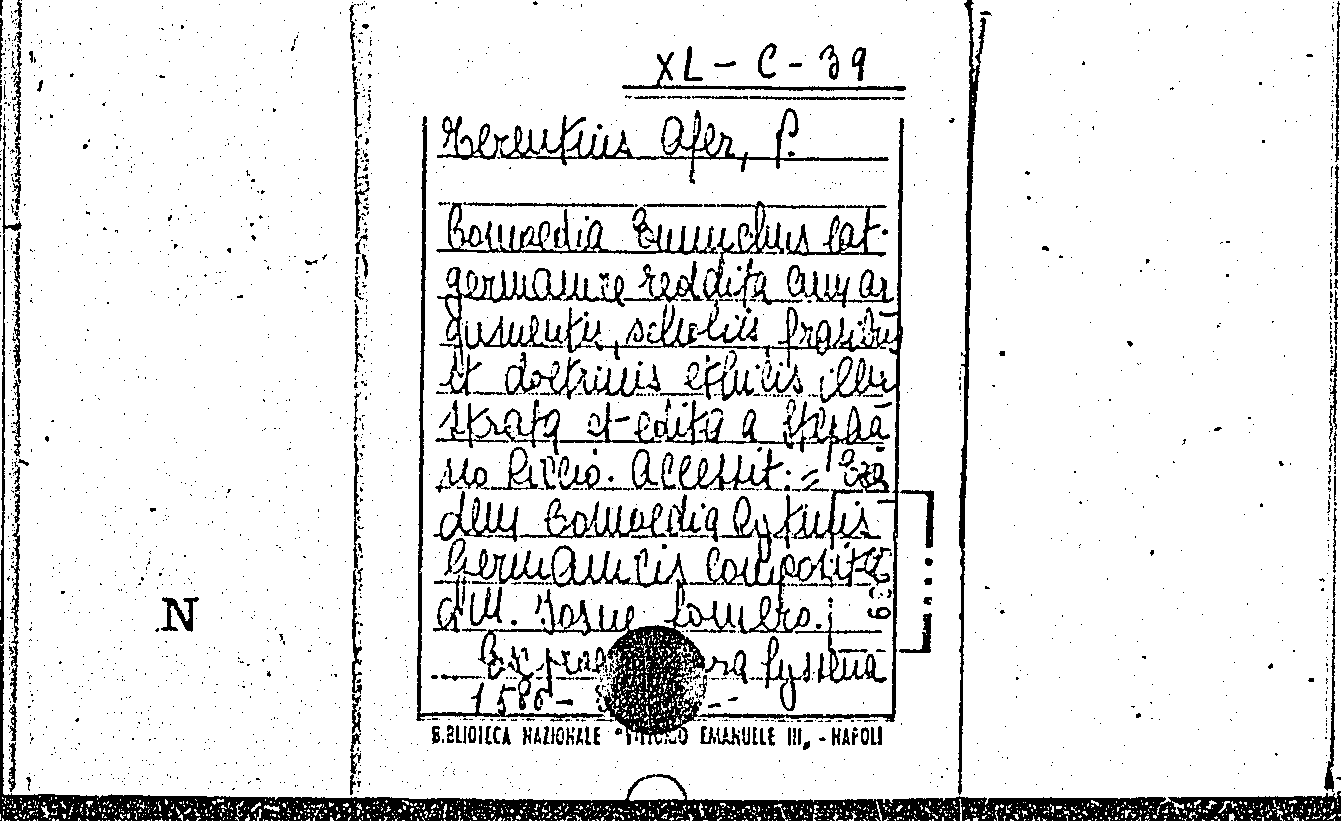 XL - C - 39
Terentius Afer, P.
Comoedia Eunuchus lat.
germanice reddita cum ar
gumentis, scholiis, frasibus
et doctrinis ethicis illu
strata et edita a Stepha
no Riccio. Accessit: = Ea
dem Comoedia Rytmis
Germanicis composita
a M. Josue Lonero.
63639
Lipsia
1586 -
BIBLIOTECA NAZIONALE "VITTORIO EMANUELE III, - NAPOLI
N